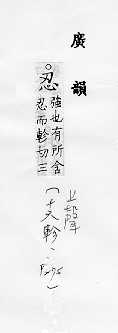 廣韻
忍
強也有所含
忍而軫切三
上聲
(十六軫、